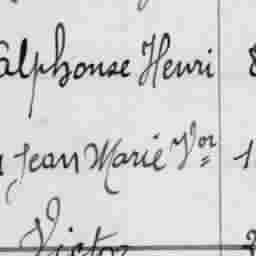 Alphonse Henri 8
Jean Marie Vor 1
Victor